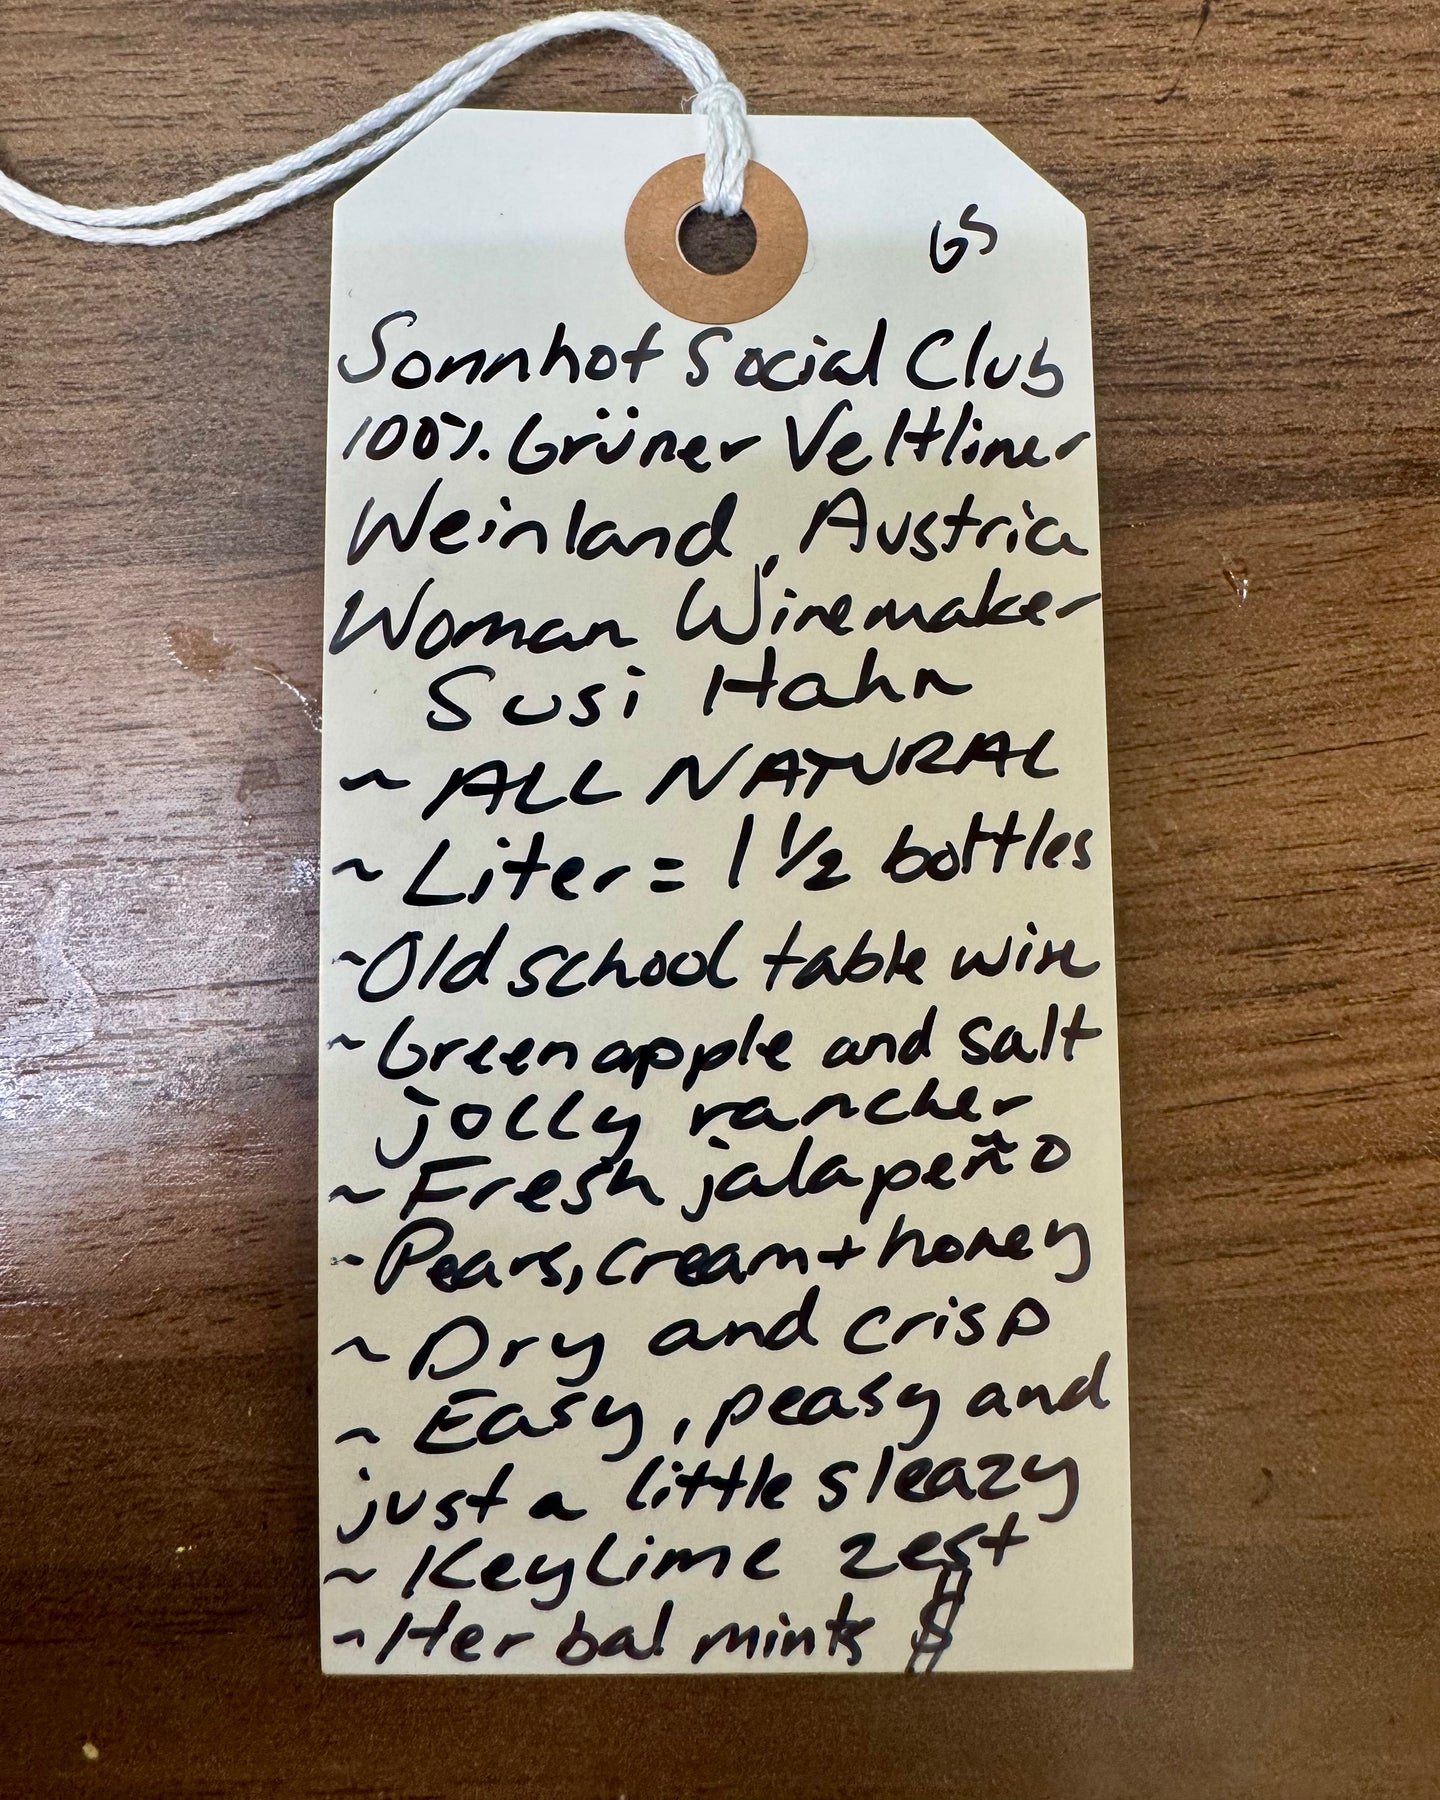 GS
Sonnhof Social Club
100% Grüner Veltliner
Weinland, Austria
Woman Winemaker
Susi Hahn
~ ALL NATURAL
~ Liter = 1 1/2 bottles
~ Old school table wine
~ Green apple and salt
jolly rancher
~ Fresh jalapeño
~ Pears, cream + honey
~ Dry and crisp
~ Easy, peasy and
just a little sleazy
~ Key Lime zest
~ Herbal mints $